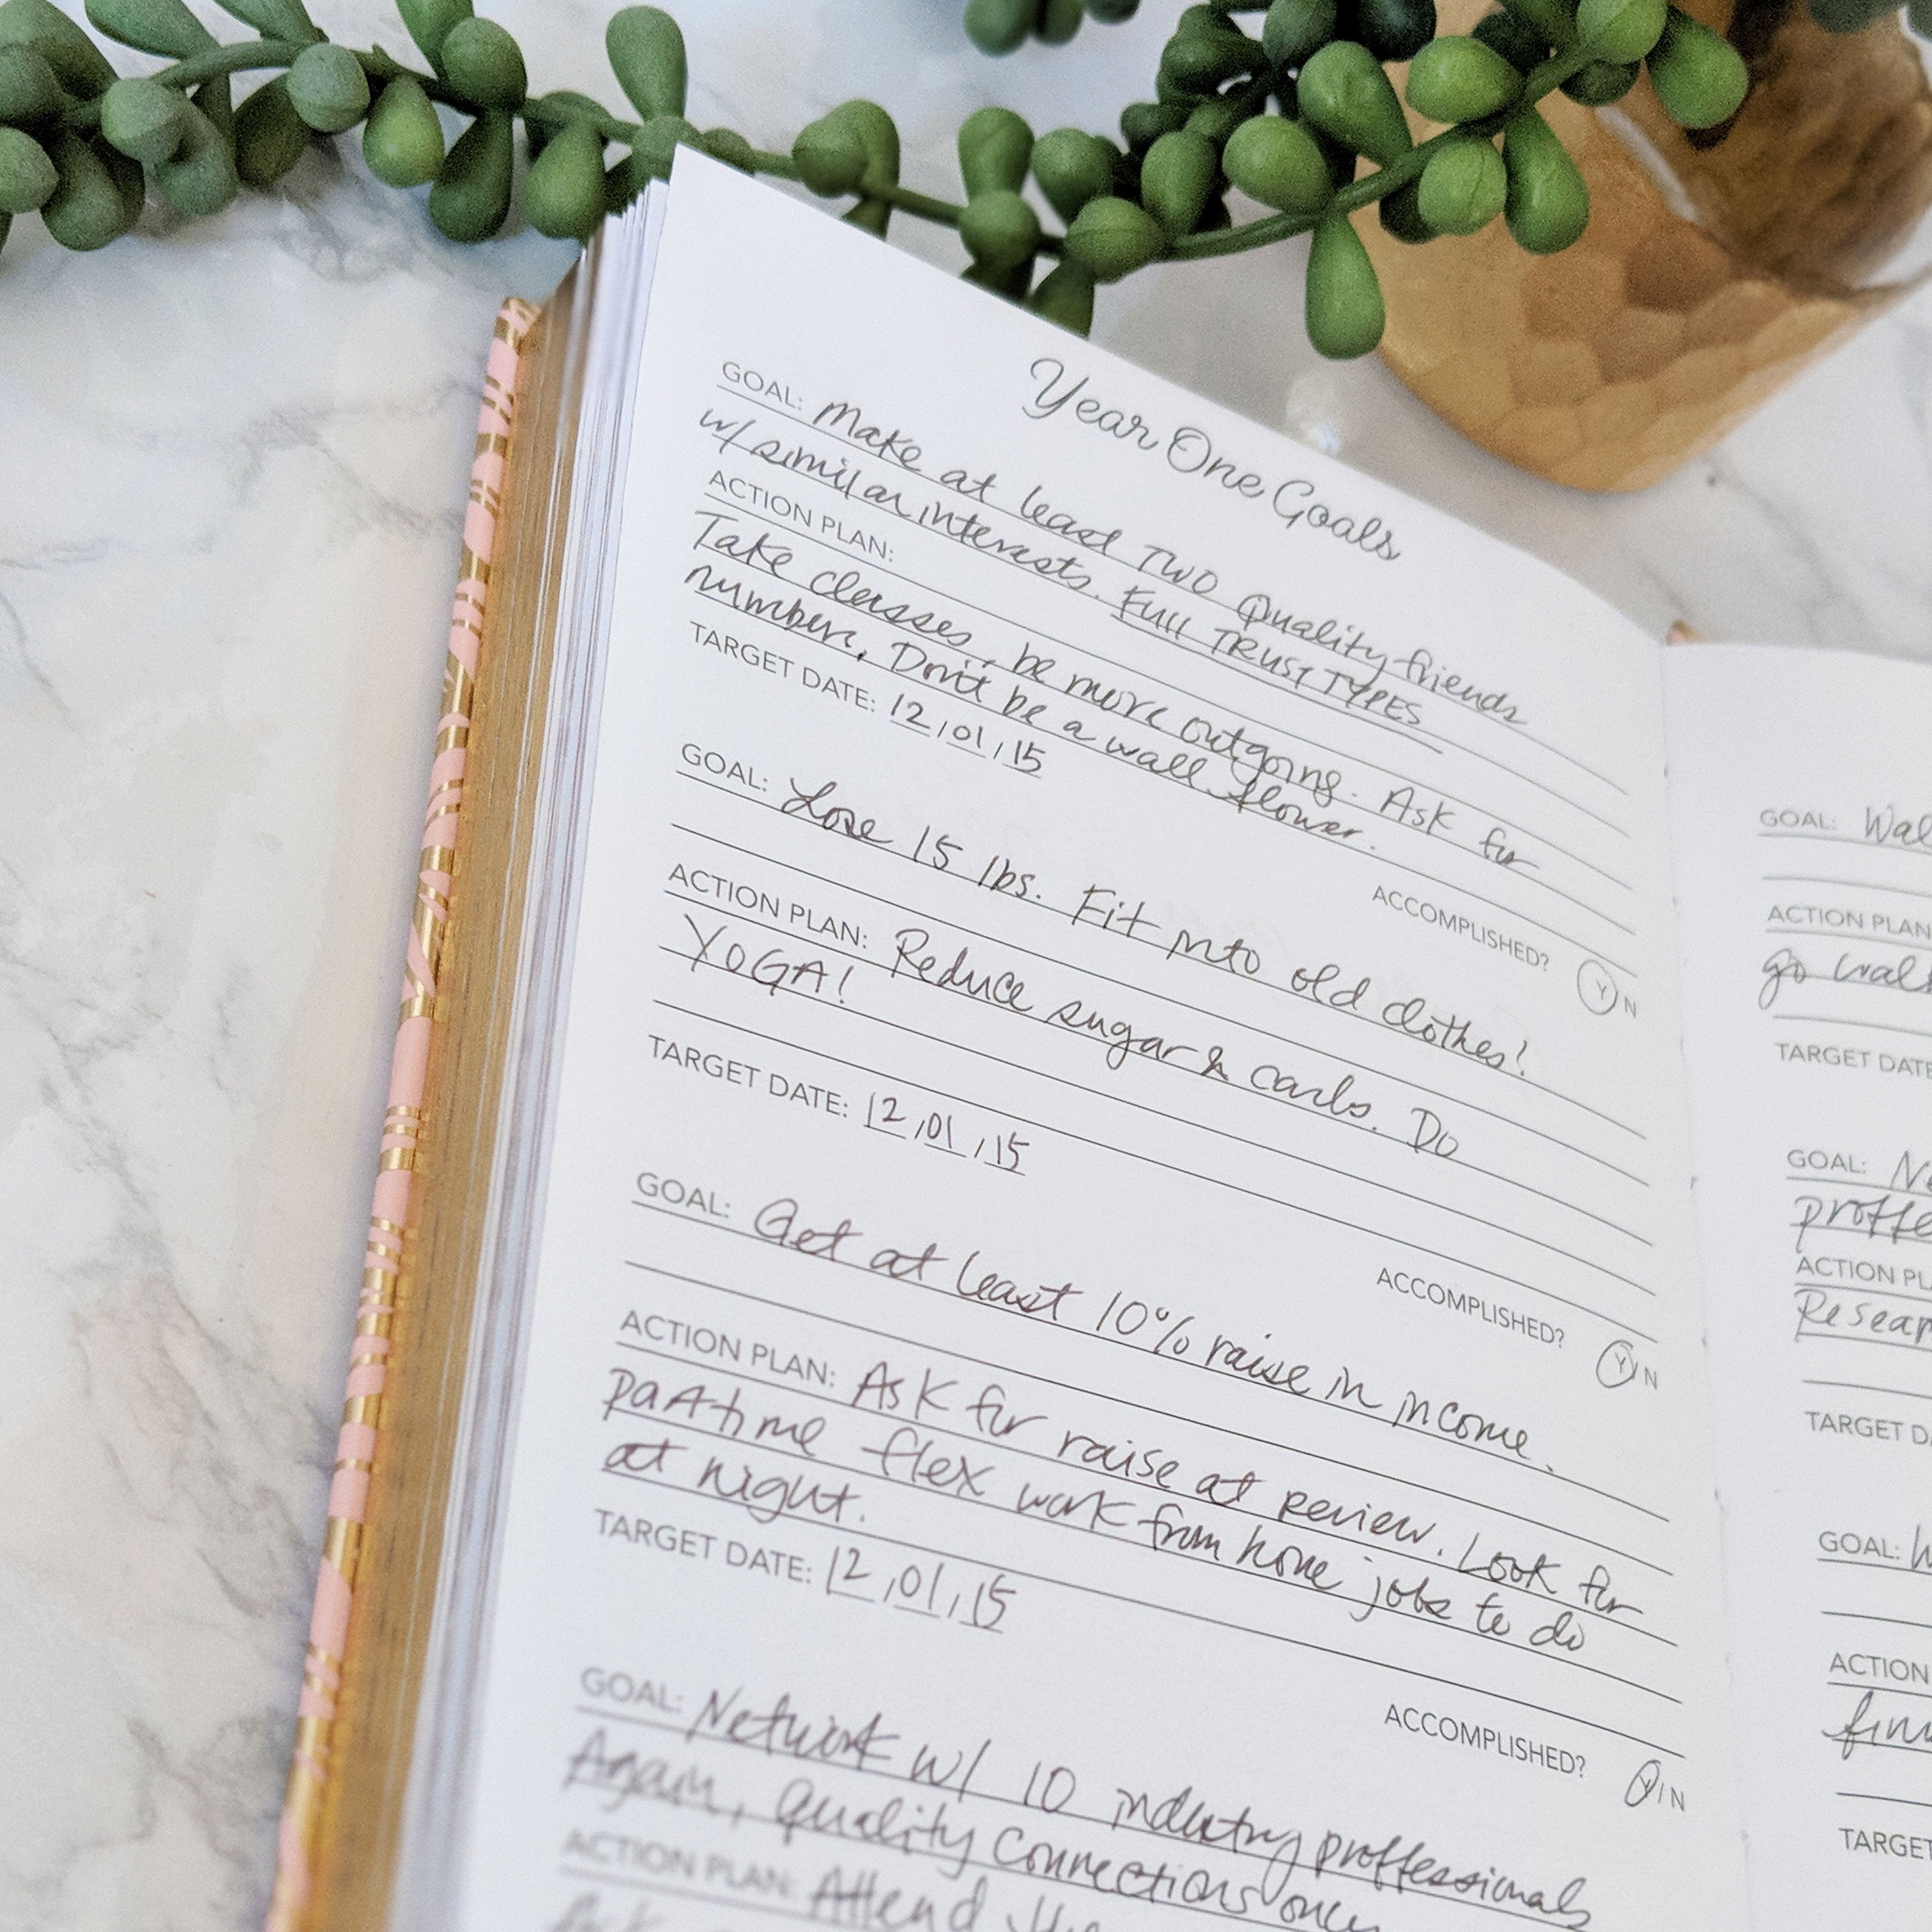 Year One Goals
GOAL: Make at least TWO Quality friends
w/ similar interests. FULL TRUST TYPES
ACTION PLAN:
Take classes, be more outgoing. Ask for
numbers. Don't be a wall flower.
TARGET DATE: 12/01/15
ACCOMPLISHED? Y/N
GOAL: Lose 15 lbs. Fit into old clothes!
ACTION PLAN: Reduce sugar & carbs. Do
YOGA!
TARGET DATE: 12/01/15
ACCOMPLISHED? Y/N
GOAL: Get at least 10% raise in income.
ACTION PLAN: Ask for raise at review. Look for
part time flex work from home jobs to do
at night.
TARGET DATE: 12/01/15
ACCOMPLISHED? Y/N
GOAL: Network w/ 10 industry proffessionals
Again, quality connections only
ACTION PLAN: Attend
GOAL: Wal
ACTION PLAN
go walk
TARGET DATE
GOAL: Ne
proffe
ACTION PL
Resear
TARGET D
GOAL:
ACTION
TARGET